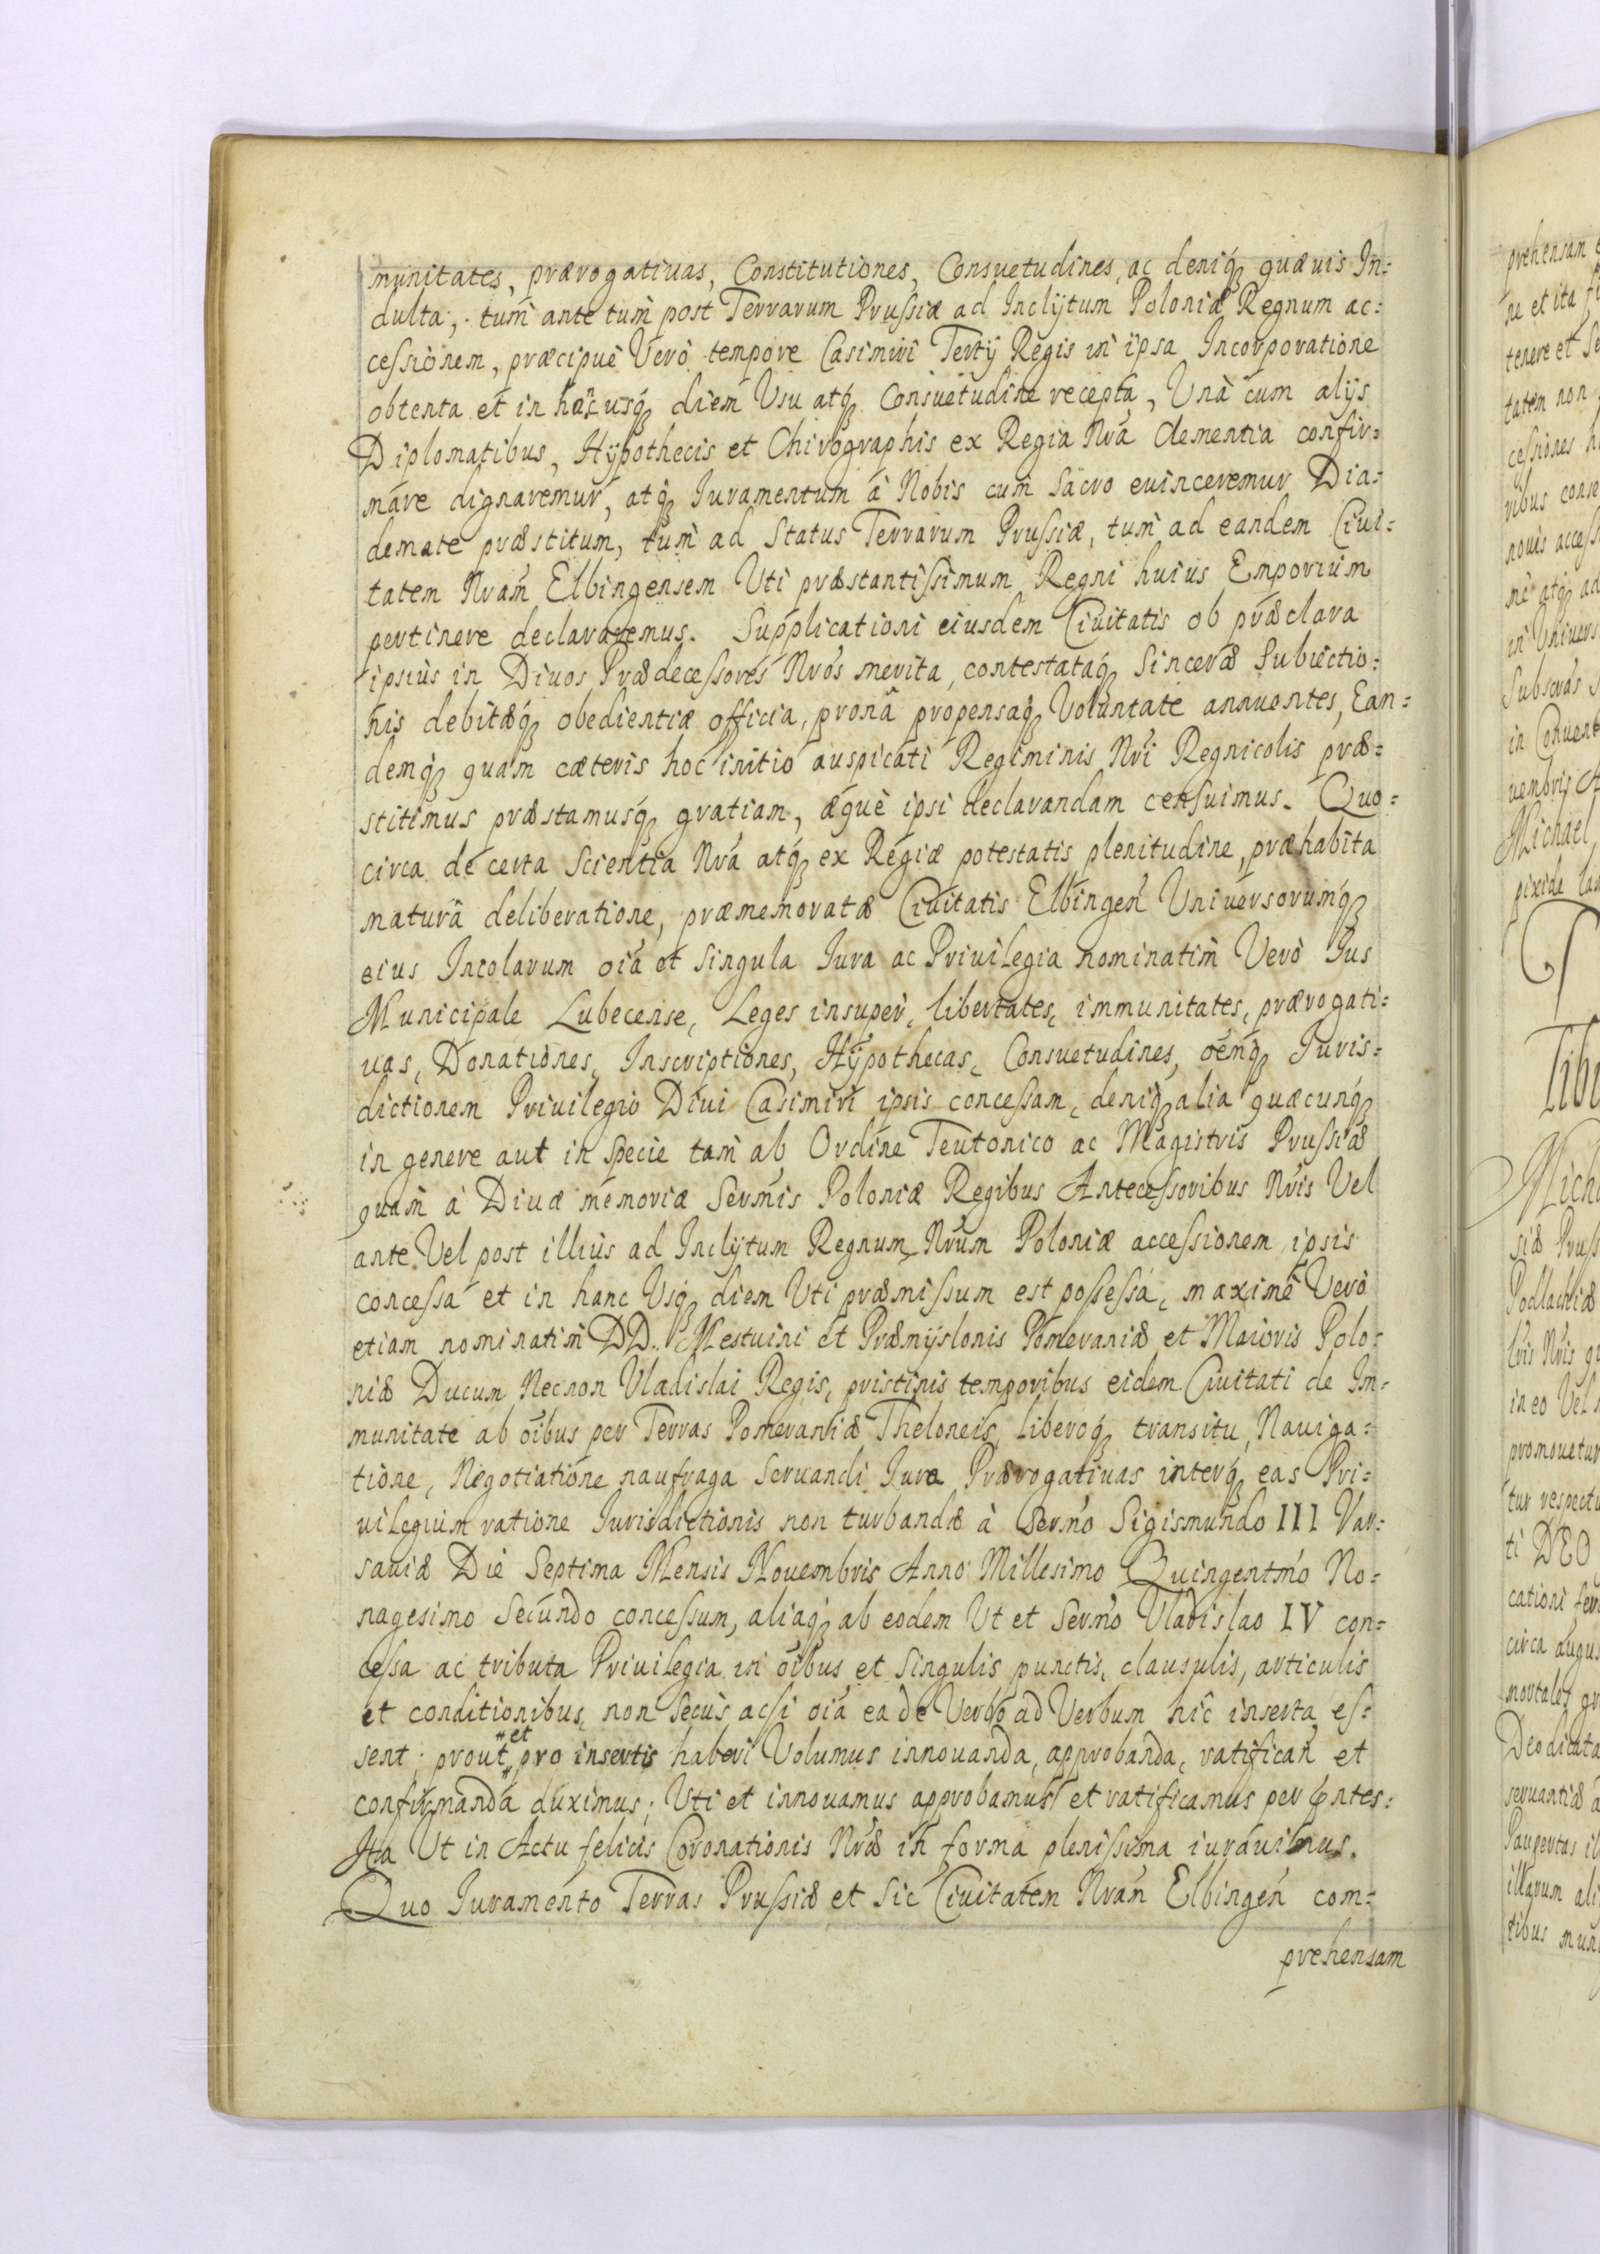 munitates, prærogatiuas, Constitutiones, Consvetudines, ac deniq́ꝫ quævis In=
dulta, tum̀ ante tum̀ post Terrarum Prussiæ ad Inclÿtum Poloniæ Regnum ac=
cessionem, præcipuè Verò tempore Casimiri Tertÿ Regis in ipsa Incorporatione
obtenta et in hancusq́ꝫ diem Usu atq́ꝫ Consvetudine recepta, Unà cum alÿs
Diplomatibus, Hÿpothecis et Chirographis ex Regia Nrá Clementia confir=
mare dignaremur, atq́ꝫ Iuramentum à Nobis cum Sacro euinceremur Dia=
demate præstitum, tum̀ ad Status Terrarum Prussiæ, tum̀ ad eandem Ciui=
tatem Nrám Elbingensem Uti præstantissimum Regni huius Emporium
pertinere declararemus. Supplicationi eiusdem Ciuitatis ob præclara
ipsius in Diuos Prædecessores Nros merita, contestataq́ꝫ Sinceræ Subiectio=
nis debitæq́ꝫ obedientiæ officia, pronâ propensaq́ꝫ Voluntate annuentes, Ean=
demq́ꝫ quam cæteris hoc initio auspicati Regiminis Nri Regnicolis præ=
stitimus præstamusq́ꝫ gratiam, æquè ipsi declarandam censuimus. Quo=
circa de certa Scientia Nrá atq́ꝫ ex Regiæ potestatis plenitudine, præhabita
maturâ deliberatione, præmemoratæ Ciuitatis Elbingeń Universorumq́ꝫ
eius Incolarum oiá et Singula Iura ac Priuilegia nominatim̀ Verò Ius
Municipale Lubecense, Leges insuper, libertates, immunitates, prærogati=
uas, Donationes, Inscriptiones, Hÿpothecas, Consvetudines, oemq́ꝫ Iuris=
dictionem Priuilegio Diui Casimiri ipsis concessam, deniq́ꝫ alia quæcunq́ꝫ
in genere aut in Specie tam̀ ab Ordine Teutonico ac Magistris Prussiæ
quam̀ à Diuæ memoriæ Sermis Poloniæ Regibus Antecessoribus Nris Vel
ante Vel post illius ad Inclÿtum Regnum Nrum Poloniæ accessionem ipsis
concessa et in hanc Usq́ꝫ diem Uti præmissum est possessa, maximè Verò
etiam nominatim̀ DD. Mestuini et Præmÿslonis Pomeraniæ et Maioris Polo=
niæ Ducum Necnon Uladislai Regis, pristinis temporibus eidem Ciuitati de Im=
munitate ab oibus per Terras Pomeraniæ Theloneis, liberoq́ꝫ transitu, Nauiga=
tione, Negotiatione naufraga Seruandi Iure Prærogatiuas interq́ꝫ eas Pri=
uilegium ratione Iurisdictionis non turbandæ à Sermo Sigismundo III Var=
sauiæ Die Septima Mensis Nouembris Anno Millesimo Quingentmo No=
nagesimo Secundo concessum, aliaq́ꝫ ab eodem Ut et Sermo Uladislao IV con=
cessa ac tributa Priuilegia in oibus et Singulis punctis, clausulis, articulis
et conditionibus, non Secus acsi oia ea de Verbo ad Verbum hic inserta es=
sent; prout et pro insertis haberi Volumus innouanda, approbanda, ratifican et
confirmanda duximus; Uti et innouamus approbamus et ratificamus per pntes.
Ita Ut in Actu felicis Coronationis Nræ in forma plenissima iurauimus.
Quo Iuramento Terras Prussiæ et Sic Ciuitatem Nram Elbingeń com=
prehensam